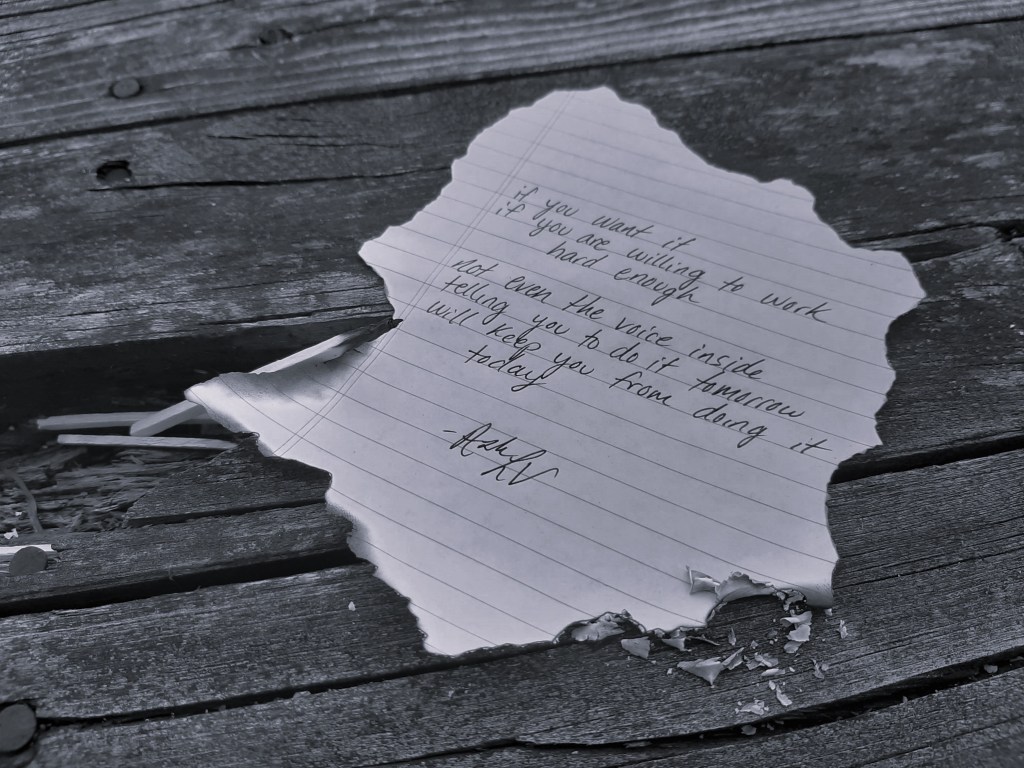 if you want it
if you are willing to work
hard enough
not even the voice inside
telling you to do it tomorrow
will keep you from doing it
today